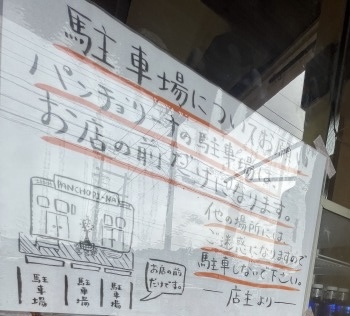 駐車場についてお願い
パンチョリーナの駐車場は、
お店の前だけになります。
他の場所には、
ご迷惑になりますので
駐車しないで下さい。
―店主より―
PANCHORI-NA
お店の前
だけです。
駐車場
駐車場
駐車場